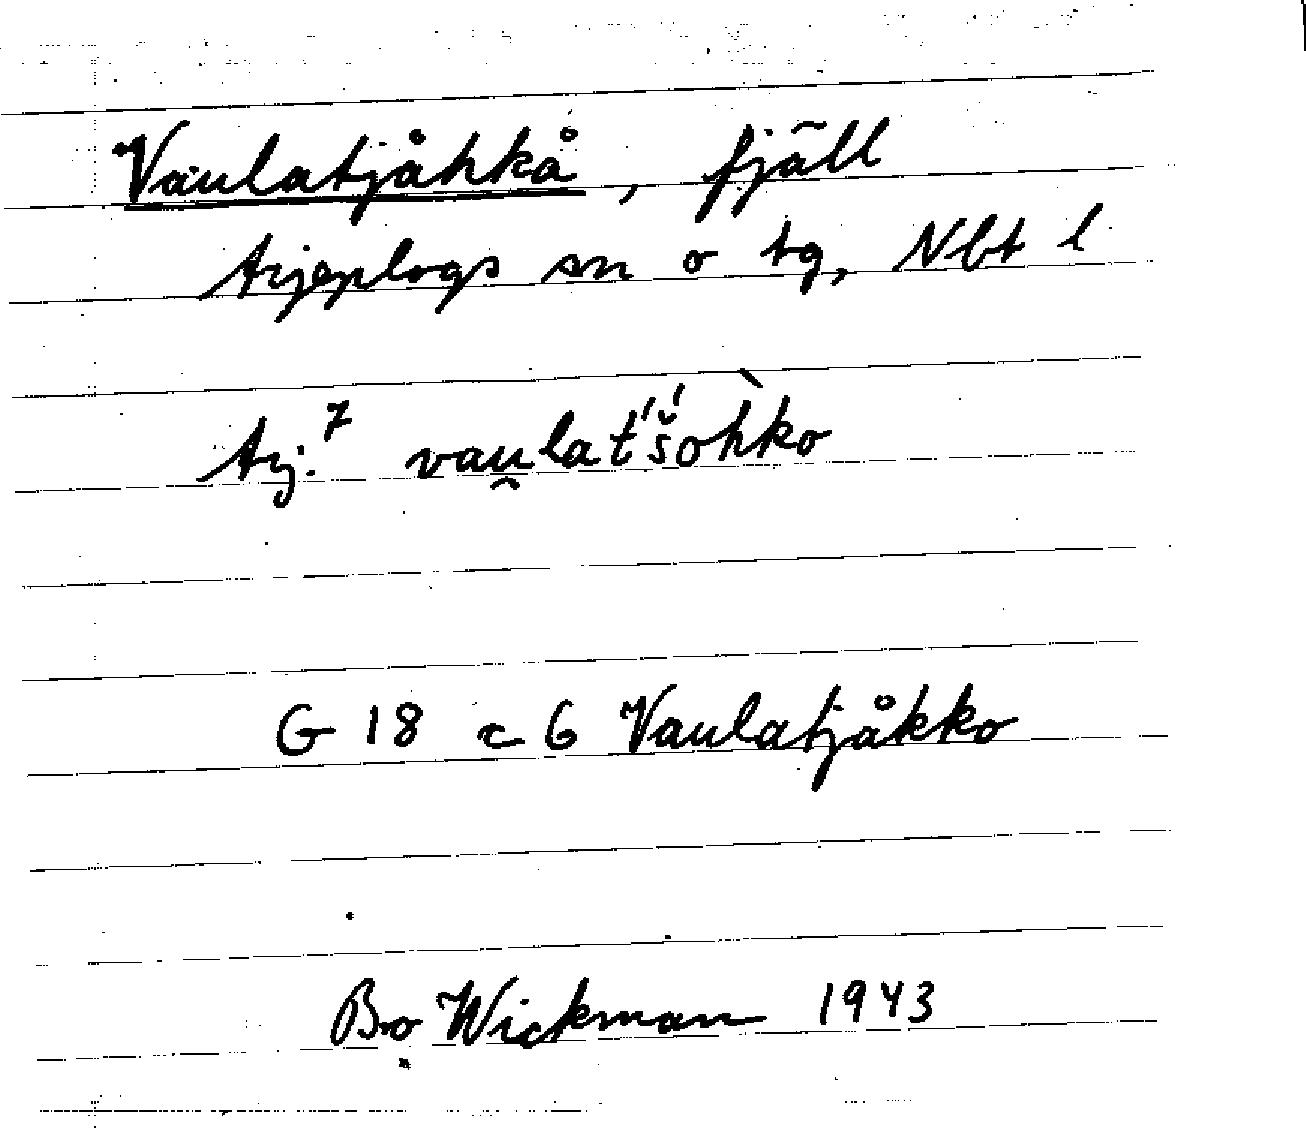 Vaulatjåhkå, fjäll
Arjeplogs sn o tg, Nbt l
Arj.⁷ vau̯lat́š́oh̀ko
G 18 c 6 Vaulatjåkko
Bo Wickman 1943